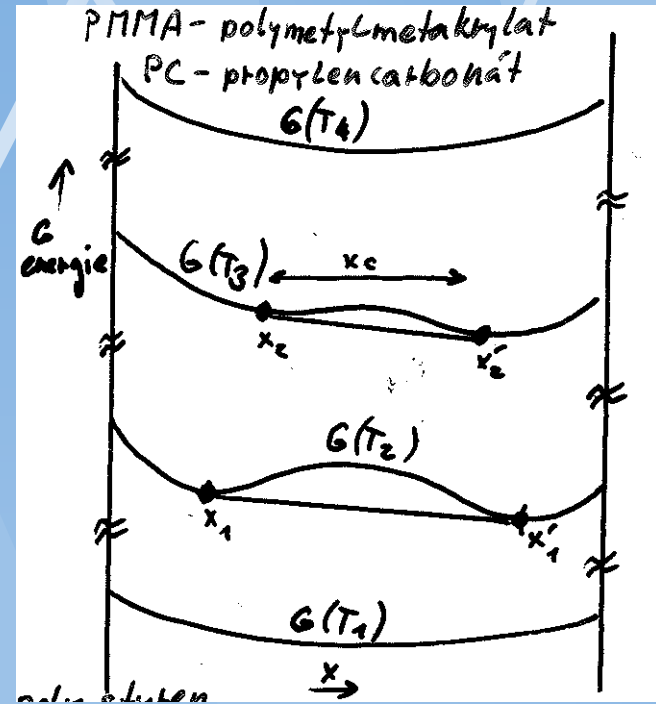 PMMA - polymetylmetakrylat
PC - propylencarbonát
G(T4)
G
energie
G(T3)
xc
x2
x2′
G(T2)
x1
x1′
G(T1)
x